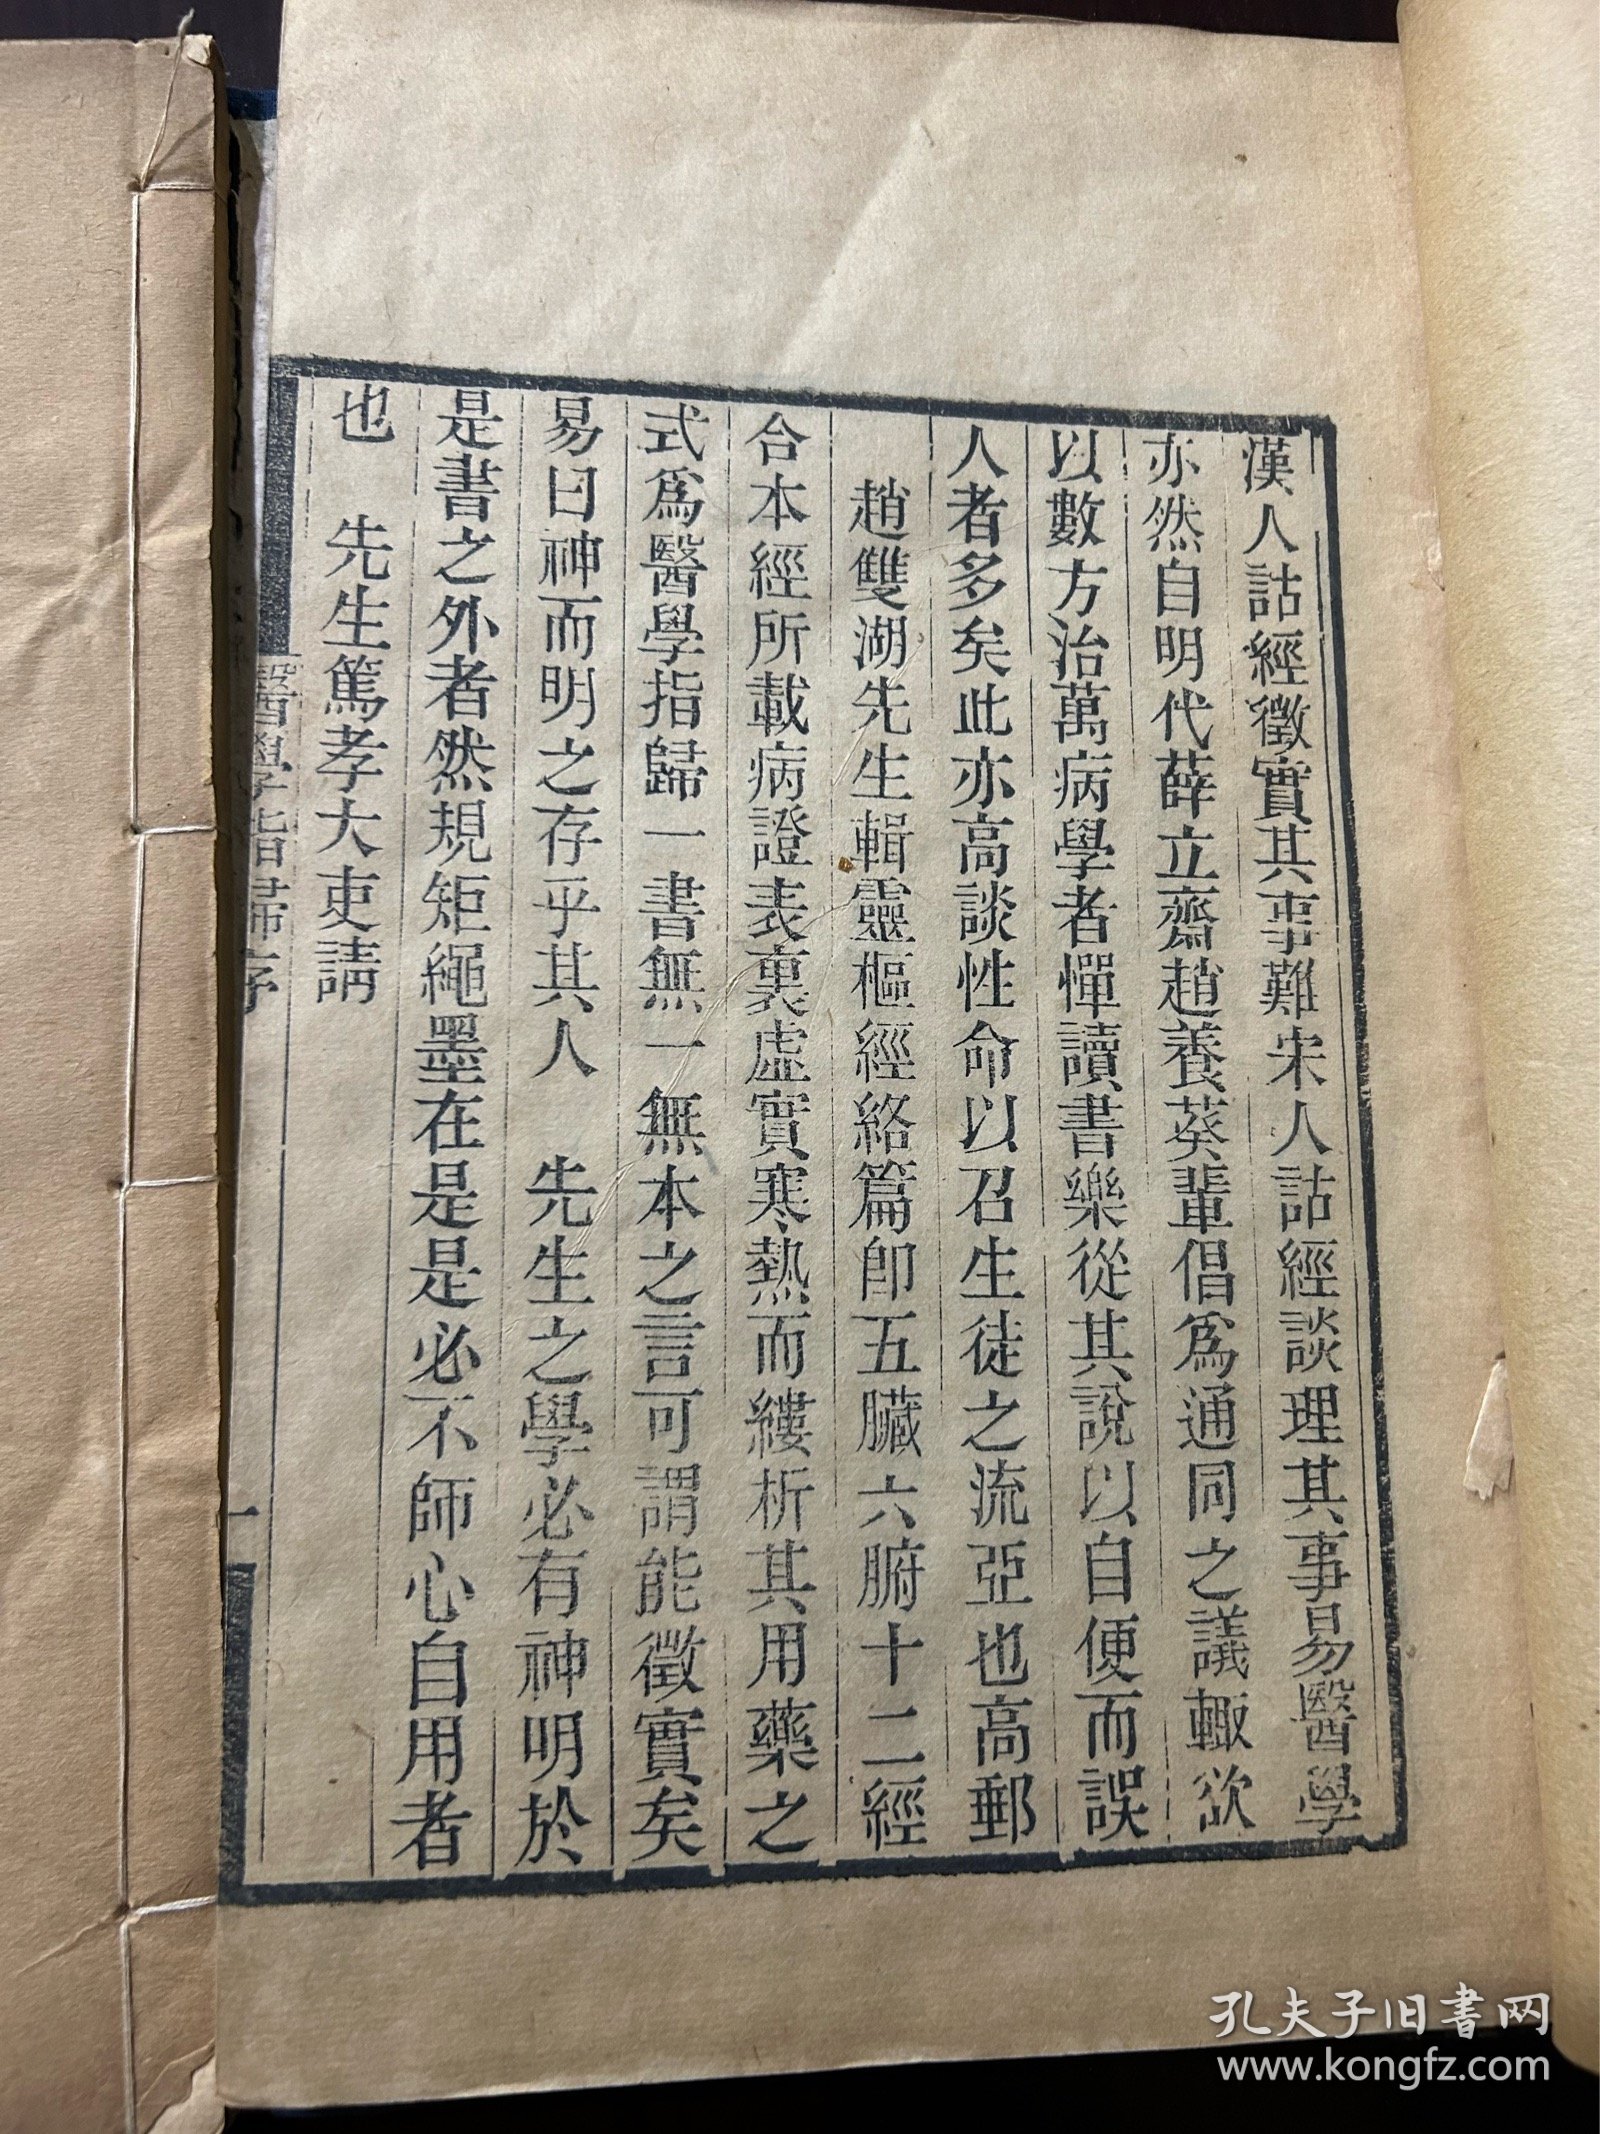 漢人詁經徵實其事難宋人詁經談理其事易醫學
亦然自明代薛立齋趙養葵輩倡爲通同之議輙欲
以數方治萬病學者憚讀書樂從其說以自便而誤
人者多矣此亦高談性命以召生徒之流亞也高郵
趙雙湖先生輯靈樞經絡篇卽五臟六腑十二經
合本經所載病證表裏虛實寒熱而縷析其用藥之
式爲醫學指歸一書無一無本之言可謂能徵實矣
易曰神而明之存乎其人 先生之學必有神明於
是書之外者然規矩繩墨在是是必不師心自用者
也 先生篤孝大吏請
醫學指歸序
一
孔夫子旧书网
www.kongfz.com